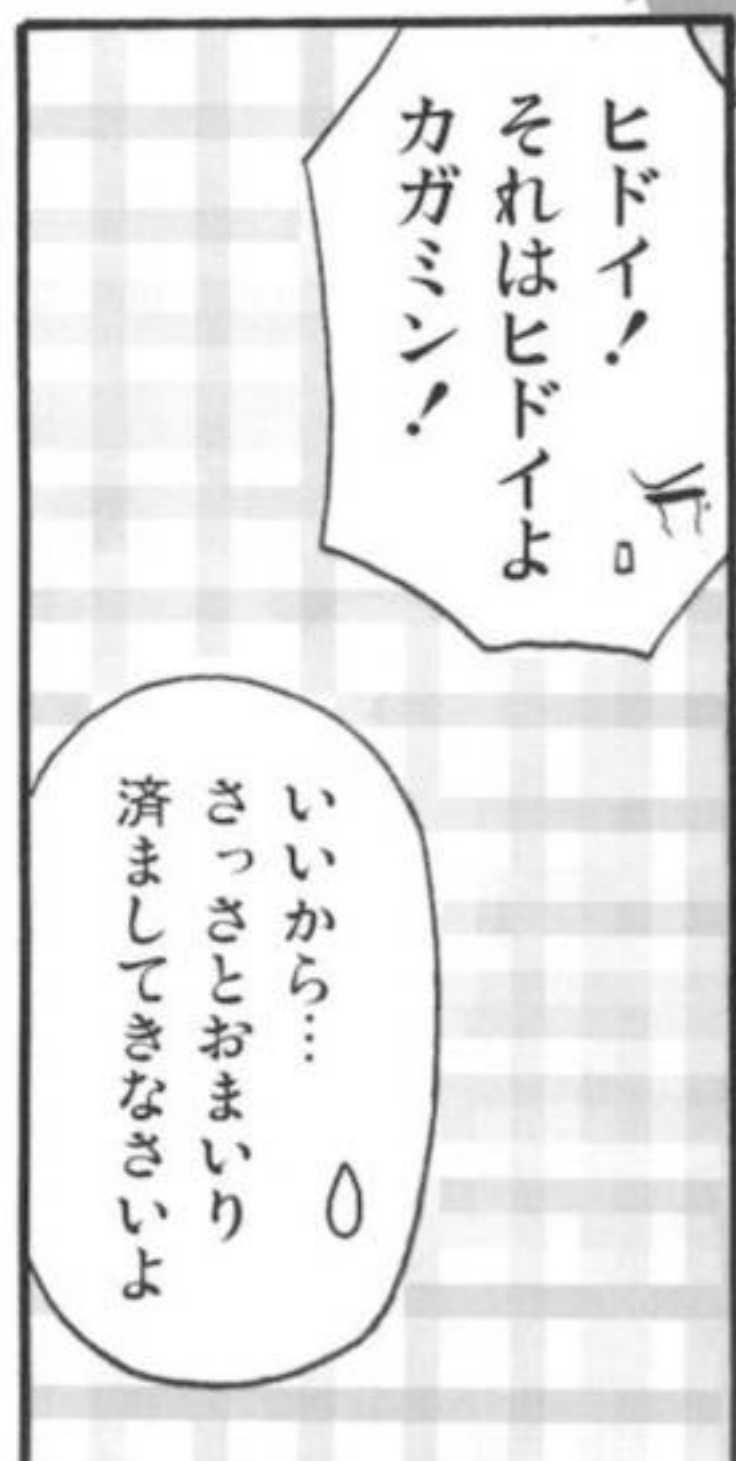 ヒドイ!
それはヒドイよ
カガミン!
いいから…
さっさとおまいり
済ましてきなさいよ